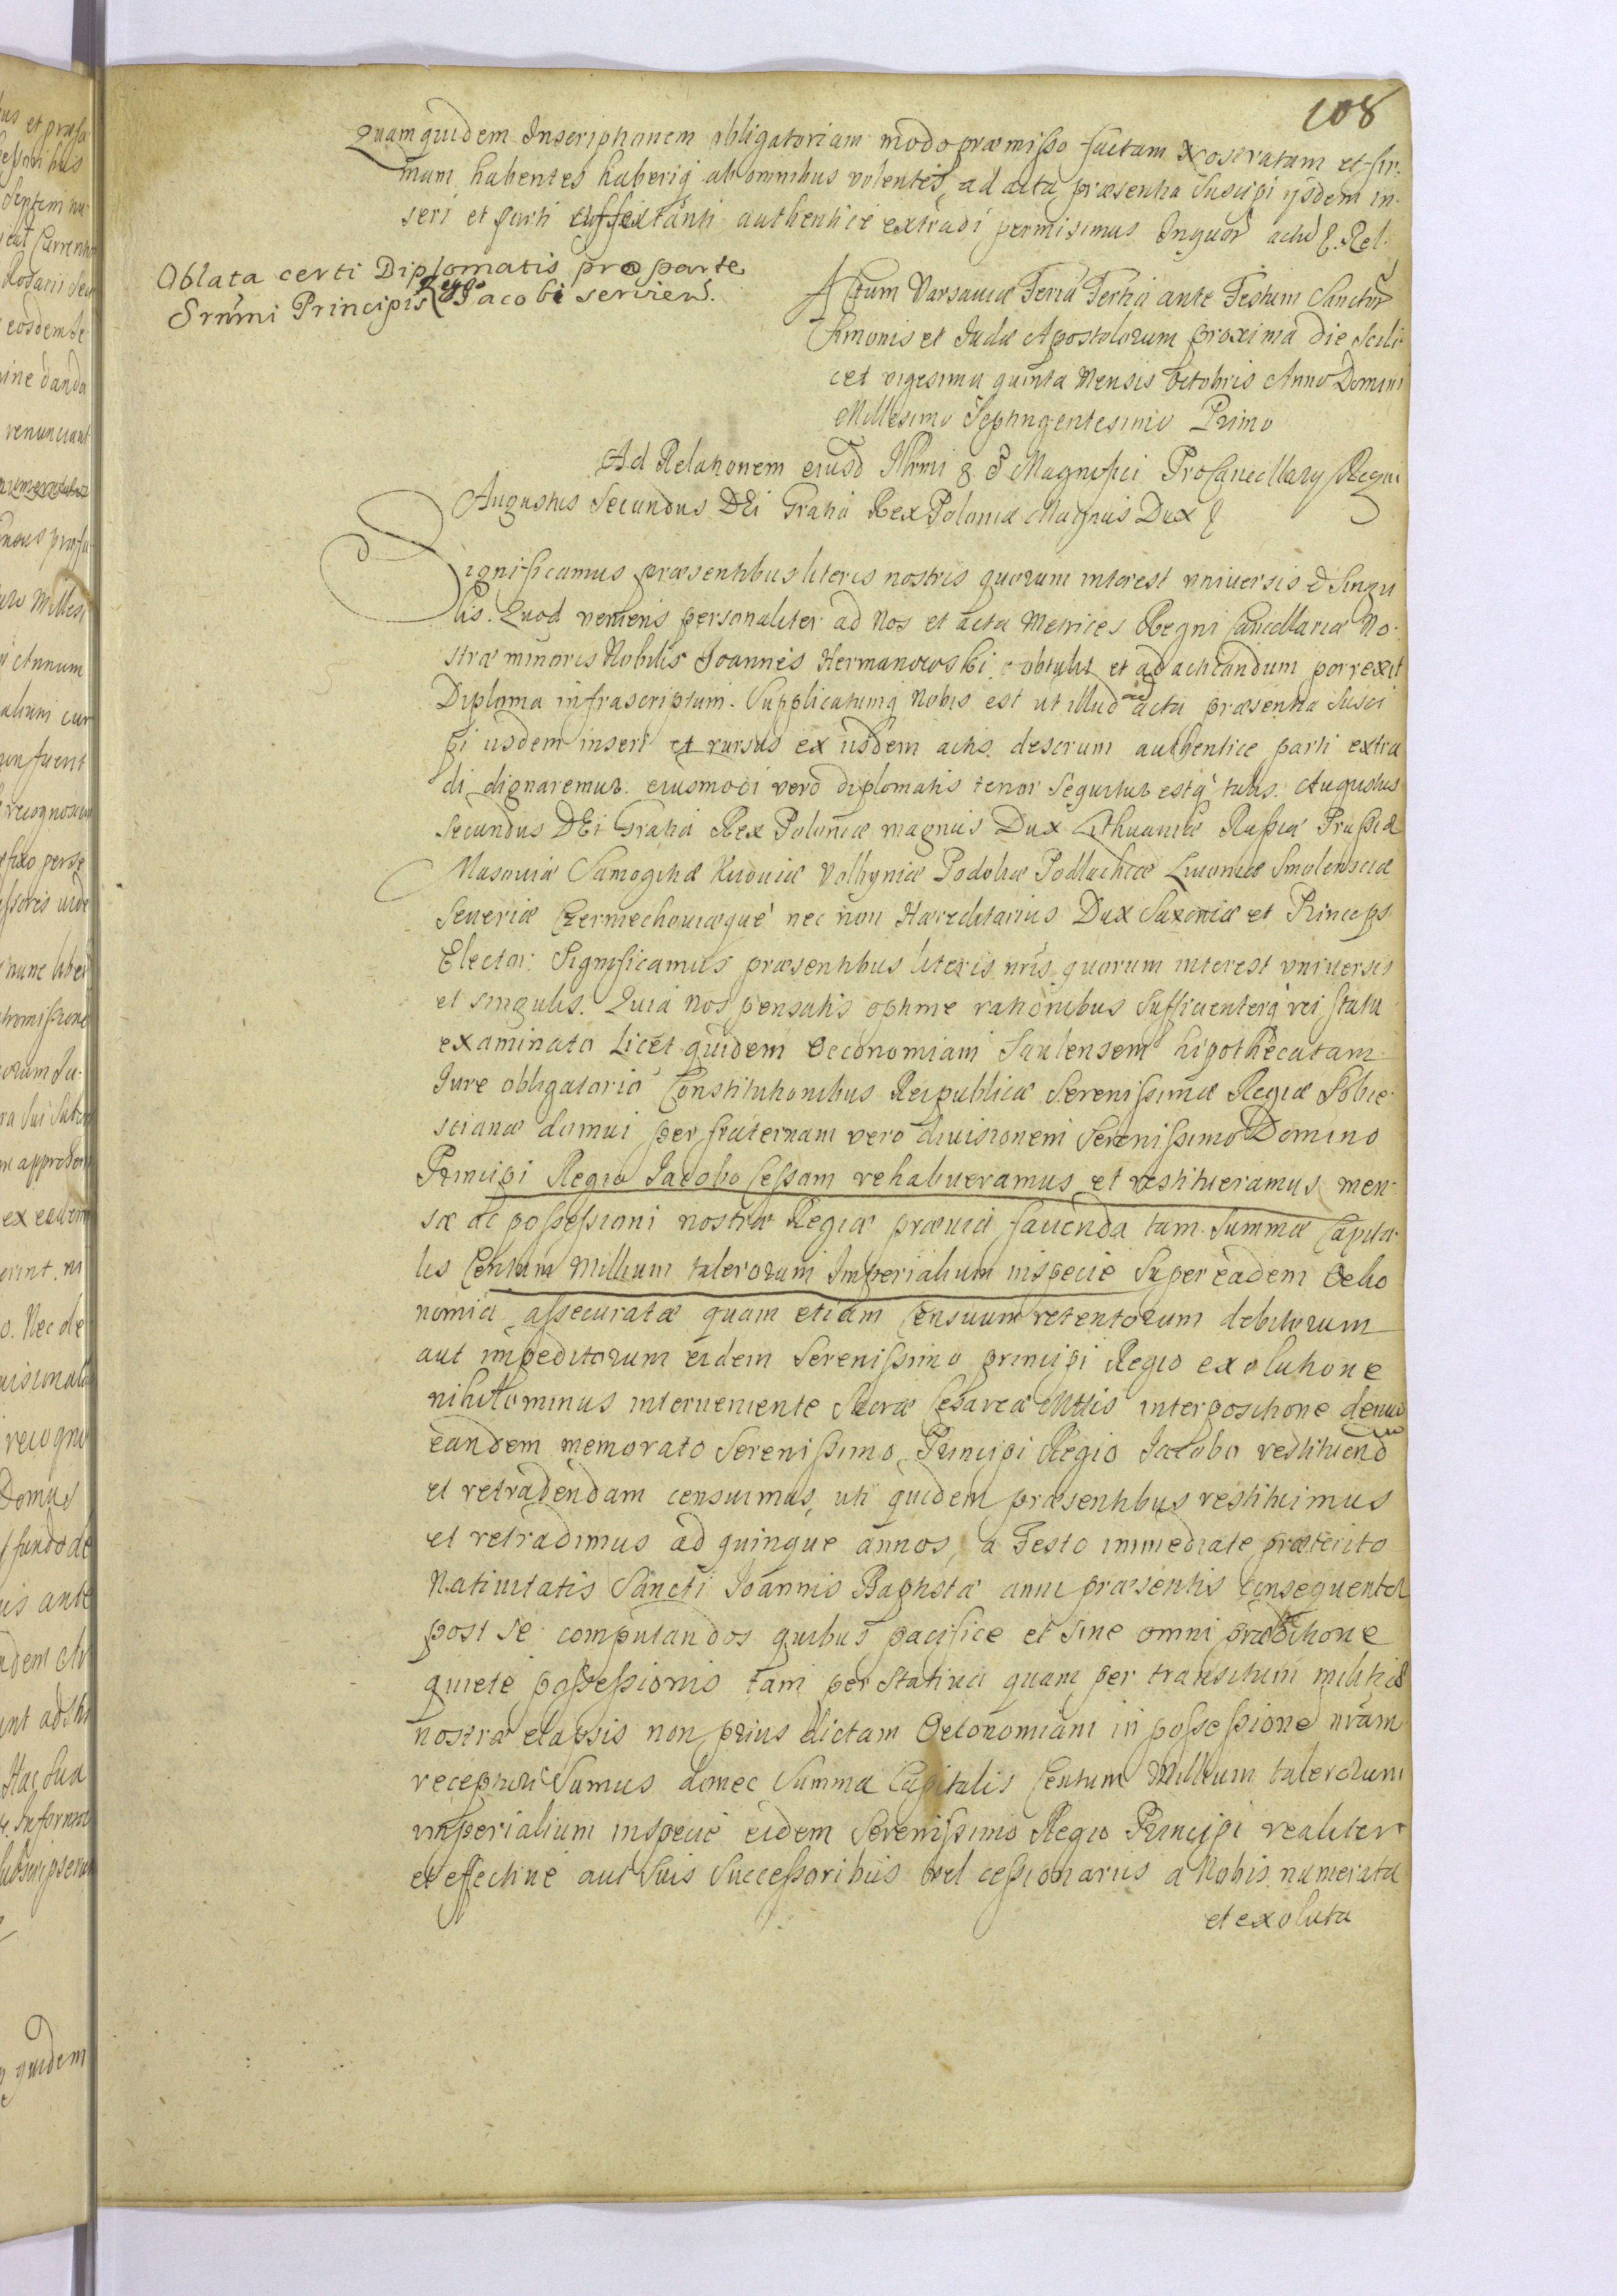 108
Quam quidem Inscriptionem obligatoriam modo præmisso factam roboratam et fir-
mam habentes haberiq ab omnibus volentes, ad acta præsentia suscipi ijsdem in-
seri et parti authentice extradi permisimus Inquor actu &. Rel.
Oblata certi Diplomatis pro parte
Srnmi Principis Regij Jacobi serviens.
Actum Varsaviæ Feria Tertia ante Festum Sanctor
Simonis et Judæ Apostolorum proxima die scili-
cet vigesima quinta Mensis Octobris Anno Domini
Millesimo Septingentesimo Primo
Ad Relationem eiusd Illrmi & P Magnifici ProCancellarij Regni
Augustus Secundus DEi Gratia Rex Poloniæ Magnus Dux &
Significamus præsentibus literis nostris quorum interest vniuersis et Singu
lis. Quod veniens personaliter ad Nos et acta Metrices Regni Cancellariæ No-
stræ minoris Nobilis Joannes Hermanowski obtulit et ad acticandum porrexit
Diploma infrascriptum. Supplicatumq Nobis est ut illud ad acta præsentia susci
pi iisdem inseri et rursus ex iisdem actis descrum authentice parti extra
di dignaremur. eiusmodi vero diplomatis tenor sequitur estq talis. Augustus
Secundus DEi Gratia Rex Poloniæ magnus Dux Lithuaniæ Russiæ Prussiæ
Masoviæ Samogitiæ Kijoviæ Volhyniæ Podoliæ Podlachiæ Livoniæ Smolensciæ
Severiæ Czerniechoviæque nec non Hæreditarius Dux Saxoniæ et Princeps
Elector. Significamus præsentibus literis nris quorum interest vniversis
et singulis. Quia nos pensatis optime rationibus sufficienterq rei statu
examinato Licet quidem Oeconomiam Saulensem hipothecatam
Jure obligatorio Constitutionibus Reipublicæ Serenissimæ Regiæ Sobie-
scianæ domui per fraternam vero divisionem Serenissimo Domino
Principi Regio Jacobo Cessam rehabueramus et restitueramus men-
sæ ac possessioni nostræ Regiæ prævia facienda tam Summæ Capita-
lis Centum Millium talerorum Imperialium inspecie Super eadem Oeko
nomia assecuratæ quam etiam Censuum retentorum debitorum
aut impeditorum eidem Serenissimo principi Regio exolutione
nihilominus interveniente Sacræ Cesareæ Mttis interpositione denuo
eandem memorato Serenissimo Principi Regio Jacobo restituend
et retradendam censuimus, uti quidem præsentibus restituimus
et retradimus ad quinque annos, a Festo immediate præterito
Nativitatis Sancti Joannis Baptistæ anni præsentis consequenter
post se computandos quibus pacifice et sine omni
quiete possessionis tam per stativa quam per transitum militiæ
nostræ elapsis non prius dictam Oeconomiam in possessione nram
recepturi Sumus donec Summa Capitalis Centum Millium talerorum
imperialium inspecie eidem Serenissimo Regio Principi realiter
et effective aut Suis Successoribus vel cessionariis a Nobis numerata
et exoluta